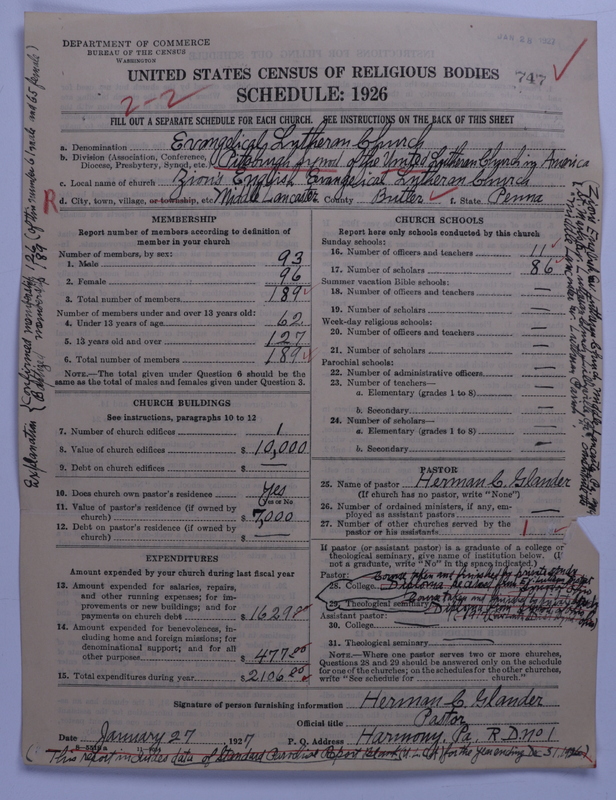 DEPARTMENT OF COMMERCE
BUREAU OF THE CENSUS
WASHINGTON
UNITED STATES CENSUS OF RELIGIOUS BODIES
747
SCHEDULE: 1926
2-2
FILL OUT A SEPARATE SCHEDULE FOR EACH CHURCH. SEE INSTRUCTIONS ON THE BACK OF THIS SHEET
a. Denomination Evangelical Lutheran Church
b. Division (Association, Conference, Diocese, Presbytery, Synod, etc.) Pittsburgh Synod of the United Lutheran Church in America
c. Local name of church Zion's English Evangelical Lutheran Church
R d. City, town, village, or township, etc. Middle Lancaster County Butler f. State Penna
MEMBERSHIP
Report number of members according to definition of
member in your church
Number of members, by sex:
1. Male 93
2. Female 96
3. Total number of members 189
Number of members under and over 13 years old:
4. Under 13 years of age 62
5. 13 years old and over 127
6. Total number of members 189
NOTE.—The total given under Question 6 should be the
same as the total of males and females given under Question 3.
CHURCH BUILDINGS
See instructions, paragraphs 10 to 12
7. Number of church edifices 1
8. Value of church edifices $ 10,000
9. Debt on church edifices $ —
10. Does church own pastor's residence Yes
(Yes or No)
11. Value of pastor's residence (if owned by
church) $ 7,000
12. Debt on pastor's residence (if owned by
church) $ —
EXPENDITURES
Amount expended by your church during last fiscal year
13. Amount expended for salaries, repairs,
and other running expenses; for im-
provements or new buildings; and for
payments on church debt $ 1629
14. Amount expended for benevolences, in-
cluding home and foreign missions; for
denominational support; and for all
other purposes $ 477.00
15. Total expenditures during year $ 2106.00
CHURCH SCHOOLS
Report here only schools conducted by this church
Sunday schools:
16. Number of officers and teachers 11
17. Number of scholars 86
Summer vacation Bible schools:
18. Number of officers and teachers —
19. Number of scholars —
Week-day religious schools:
20. Number of officers and teachers —
21. Number of scholars —
Parochial schools:
22. Number of administrative officers —
23. Number of teachers—
a. Elementary (grades 1 to 8) —
b. Secondary —
24. Number of scholars—
a. Elementary (grades 1 to 8) —
b. Secondary —
PASTOR
25. Name of pastor Herman C. Glander
(If church has no pastor, write "None")
26. Number of ordained ministers, if any, em-
ployed as assistant pastors —
27. Number of other churches served by the
pastor or his assistants 1
If pastor (or assistant pastor) is a graduate of a college or
theological seminary, give name of institution below. (If
not a graduate, write "No" in the space indicated.)
Pastor:
28. College
29. Theological seminary
Assistant pastor:
30. College
31. Theological seminary
NOTE.—Where one pastor serves two or more churches,
Questions 28 and 29 should be answered only on the schedule
for one of the churches; on the schedules for the other churches,
write "See schedule for church."
Signature of person furnishing information Herman C. Glander
Official title Pastor
Date January 27, 1927 P. O. Address Harmony, Pa. R.D. no 1
(This report includes data of Standard Parochial Report Blank for the year ending Dec 31, 1926)
Explanation { Confirmed membership 126 (of this number 61 male and 65 female)
Baptized membership 189